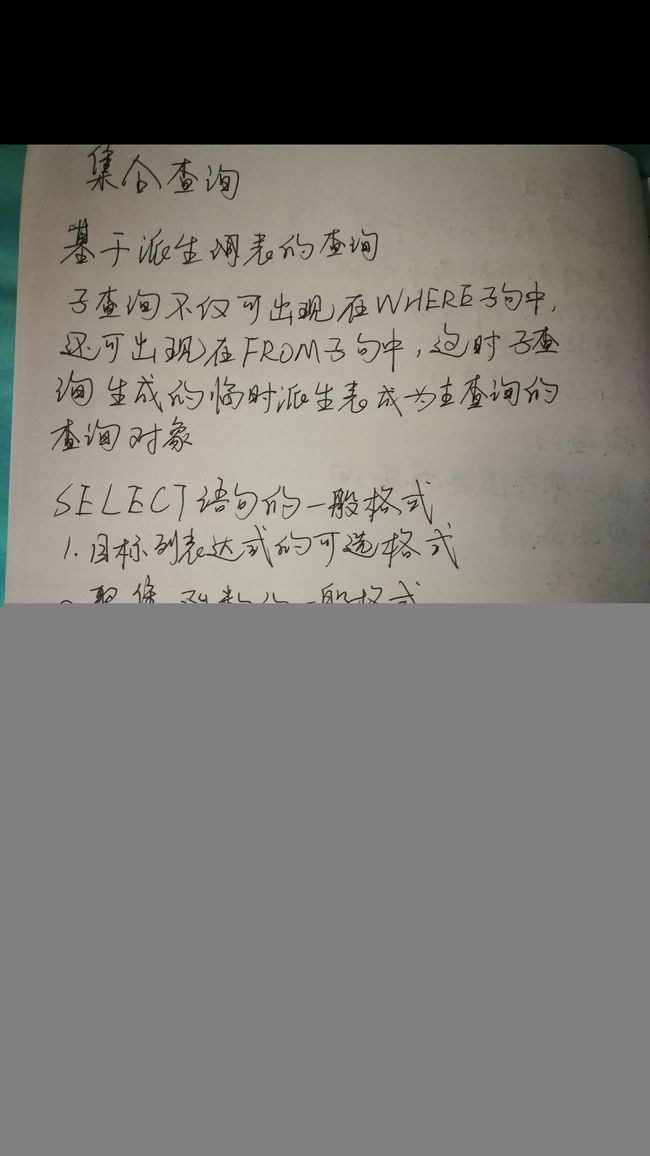 集合查询
基于派生表的查询
子查询不仅可出现在WHERE子句中,
还可出现在FROM子句中,这时子查
询生成的临时派生表成为主查询的
查询对象
SELECT语句的一般格式
1.目标列表达式的可选格式
一般格式